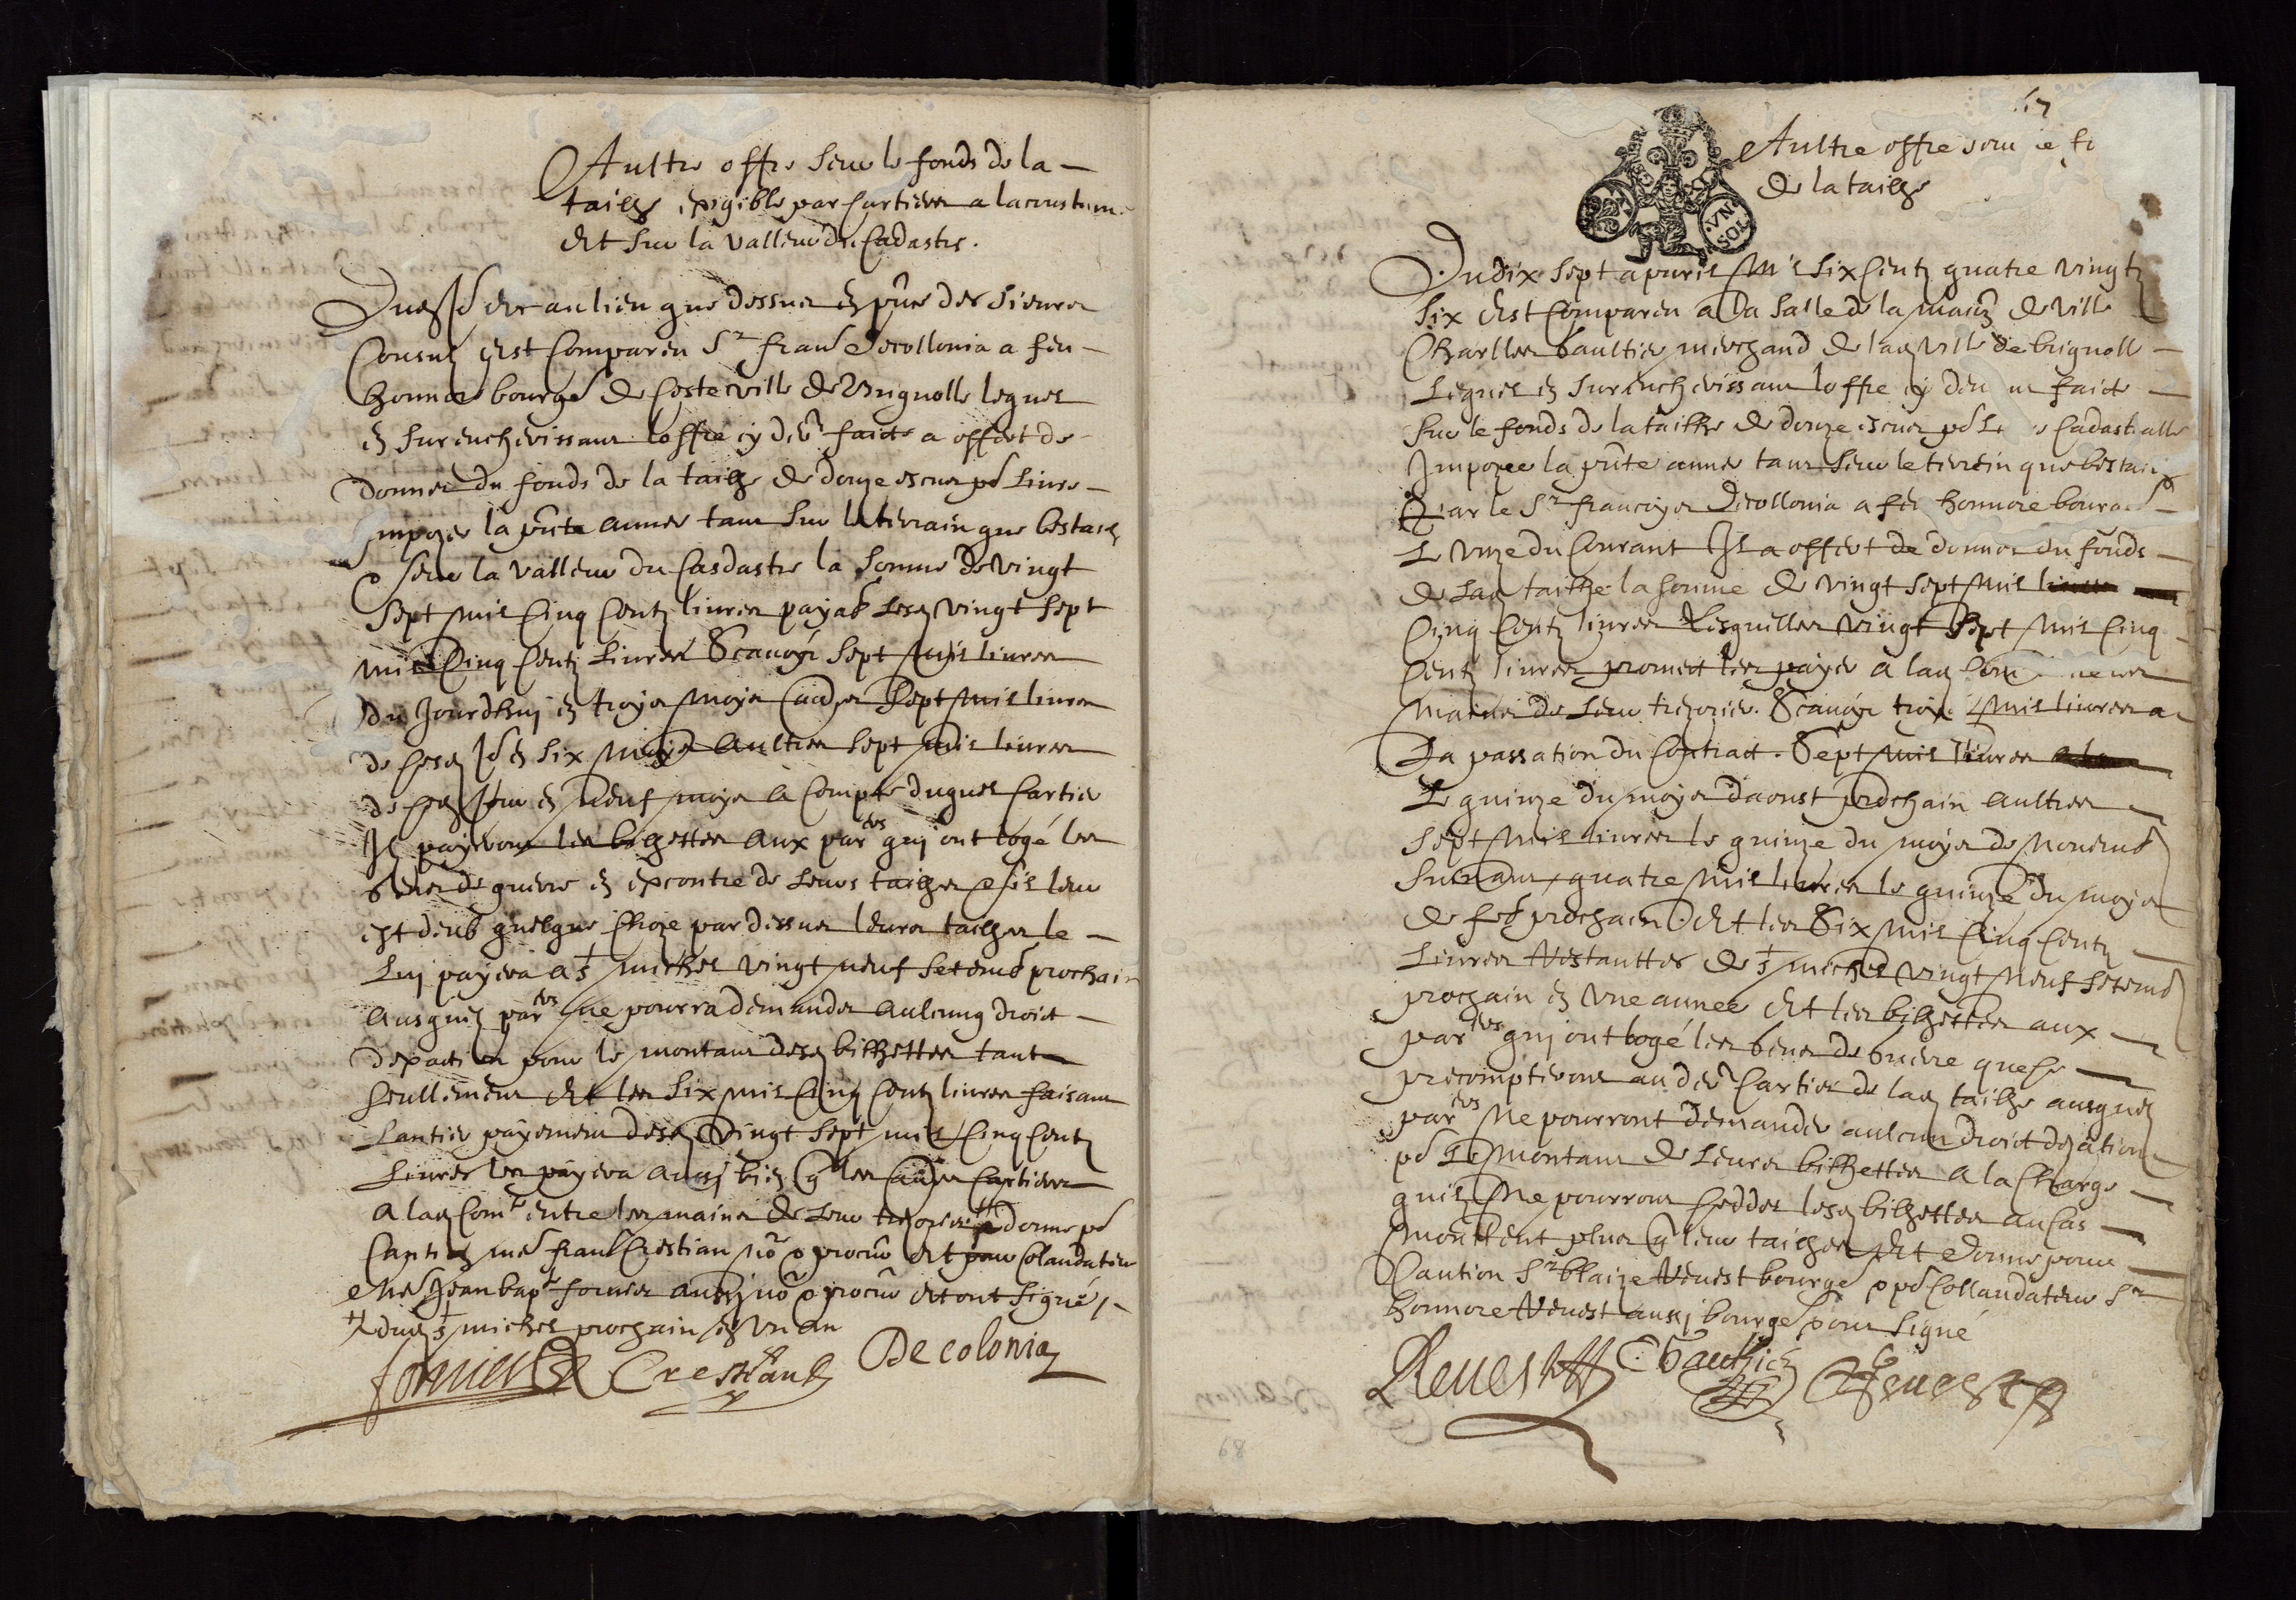 Aultre offre sur le fonds de la
tailhe exigible par cartier a lacoustum
et sur la valleur du cadastre.
Dud jo et au lieu que dessus en pnce des sieurs
Consulz est comparu Sr franc decollonia a feu
honnore bourge de ceste ville de Brignolle lequel
en surencherissant loffre cy devt faicte a offert de
donner du fonds de la tailhe de douze escus pr livre
impozee la pnte annee tant sur le terrain que bestail
sur la valleur du casdastre la somme de vingt
sept mil cinq centz livres payab lesd vingt sept
mil cinq centz livres Scavoir sept mil livres
du jourdhuy en troys moys sept mil livres
de cesd jor en six moys aultres sept mil livres
de cesd jour en neuf moys a compte duquel cartier
Il payera les bilhettes aux pares qui ont logé les
gens de guerre en expcontre de leurs tailhes e sil leur
est deub quelque choze par dessus leurs tailhes le
Luy payera a st michel vingt neuf setemb prochain
ausquelz pares ne pourra demander aulcung droit
dexaction pour le montant desd bilhettes tant
seullement et les six mil cinq centz livres faisant
lantier payement desd vingt sept mil cinq centz
Livres les payera aussy bien q les cartiers
a lad comte entre les mains de leur trezorier # donne pr
Caution me franc Crestian nore procur et pour colaudateur
e me Jean bapt fornier aussy nore procur et ont signé
# dud st michel prochain en un an
fornier Crestian Decolonia
17
Aultre offre sur le fo
de la tailhe
VN SOL
Du dix sept apvril mil six centz quatre vingtz
six est comparu a la salle de la maison de ville
Charlles Gaultier merchand de lad ville de brignolle
Lequel en surencherissant loffre cy faicte
sur le fonds de la tailhe de douze escus pr cadastralle
Impozee la pnte annee tant sur le terrein que bestail
Par le Sr francoys decollonia a feu honnore
Le unze du courant Il a offert de donner du fonds
de lad tailhe la somme de vingt sept mil
cinq centz livres Lesquelles vingt sept mil cinq
centz livres promet les payer a lad
mains de leur trezorier. Scavoir troys mil livres a
La passation du contract. Sept mil livres
Le quinze du moys daoust prochain aultres
sept mil livres le quinze du moys de novemb
suivant quatre mil livres le quinze du moys
de feb prochain. Et les six mil cinq centz
Livres restanttes de st michel vingt neuf setemb
prochain en une annee et les bilhettes aux
pares qui ont logé les gens de guerre que se
precompteront au der cartier de lad tailhe ausquelz
pares ne pourront demander aulcun droict dezation
pr le montant de leurs bilhettes a la charge
quilz ne pourront cedder lesd bilhettes au cas
monttent plus q leur tailhes et donne pour
Caution Sr blaize Revest bourge pr collaudateur Sr
honnore Revest aussy bourge pour signé
Revest Gaultier Revest
89